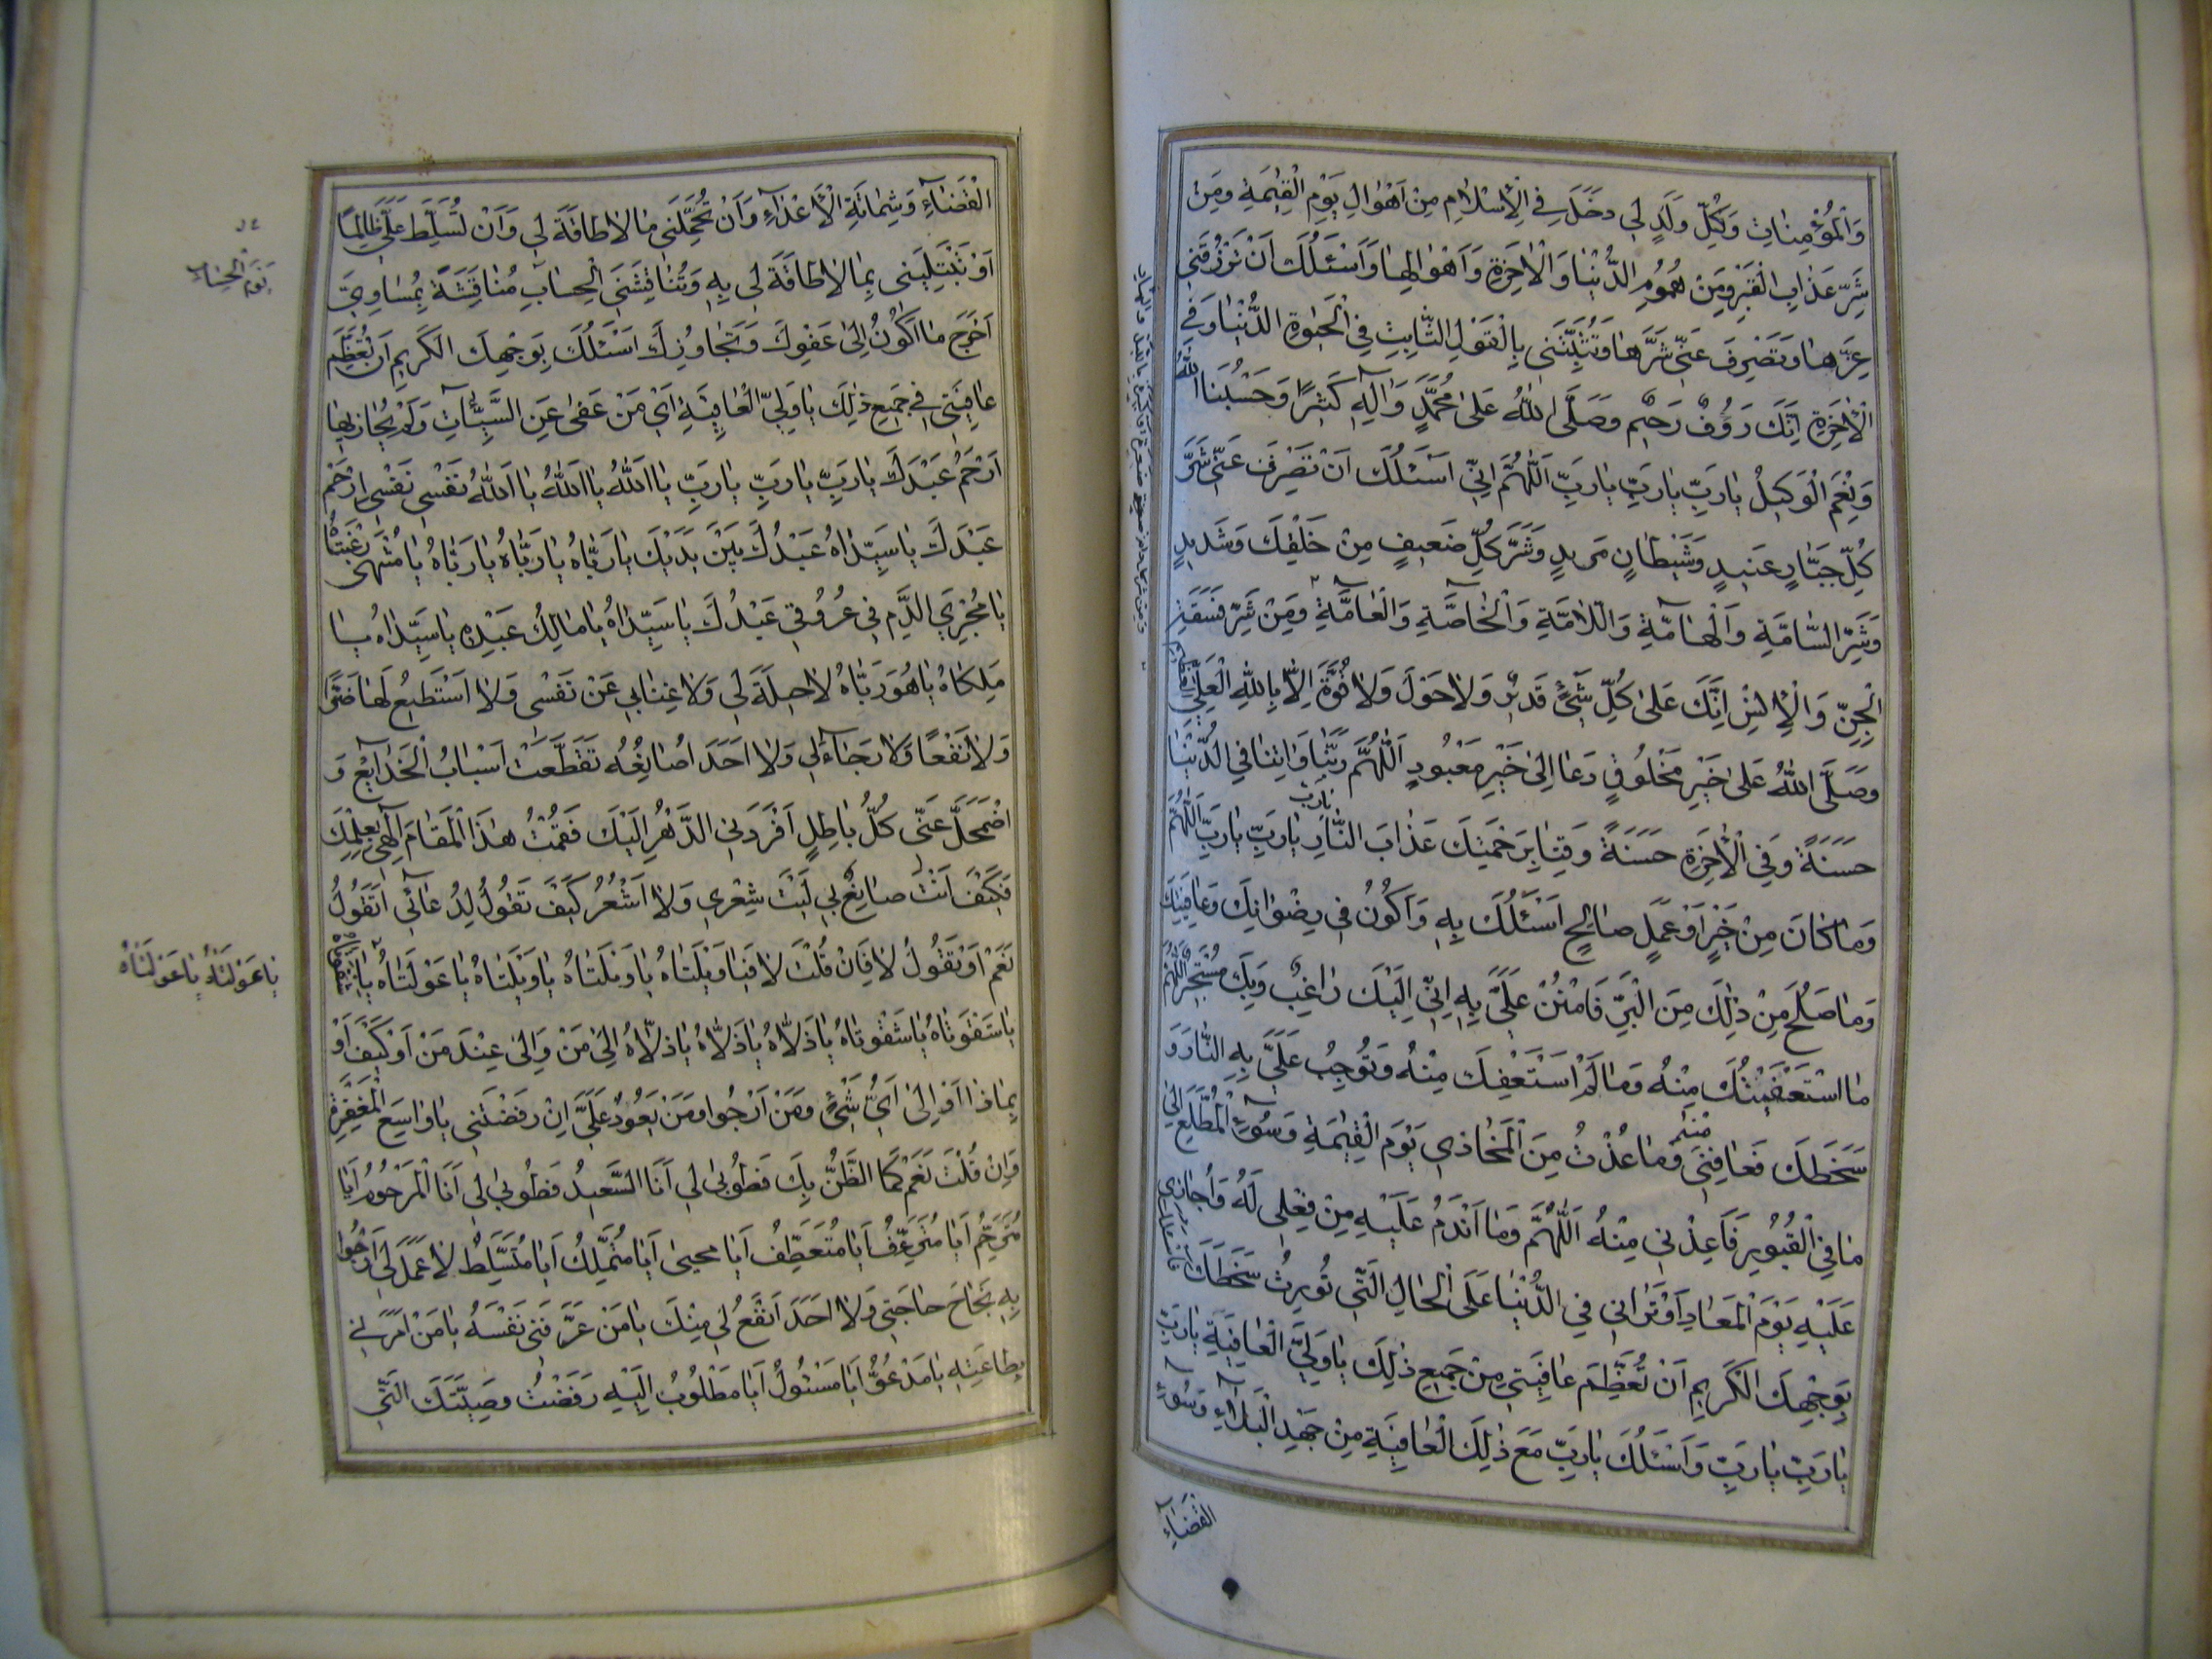 وَالْمُؤْمِنَاتِ وَكُلِّ وَلَدٍ لِي دَخَلَ فِي الْإِسْلَامِ مِنْ اَهْوَالِ يَوْمِ الْقِيٰمَةِ وَمِنْ
شَرِّ عَذَابِ الْقَبْرِ وَمِنْ هُمُومِ الدُّنْيَا وَالْاٰخِرَةِ وَاَهْوَالِهَا وَاَسْئَلُكَ اَنْ تَرْزُقَنِي
عِزَّهَا وَتَصْرِفَ عَنِّي شَرَّهَا وَتُثَبِّتَنِي بِالْقَوْلِ الثَّابِتِ فِي الْحَيٰوةِ الدُّنْيَا وَفِي
الْاٰخِرَةِ اِنَّكَ رَؤُفٌ رَحِيمٌ وَصَلَّى اللهُ عَلىٰ مُحَمَّدٍ وَاٰلِهِ كَثِيرًا وَحَسْبُنَا اللهُ
وَنِعْمَ الْوَكِيلُ يَارَبِّ يَارَبِّ يَارَبِّ اَللّٰهُمَّ اِنِّي اَسْئَلُكَ اَنْ تَصْرِفَ عَنِّي شَرَّ
كُلِّ جَبَّارٍ عَنِيدٍ وَشَيْطَانٍ مَرِيدٍ وَشَرَّ كُلِّ ضَعِيفٍ مِنْ خَلْقِكَ وَشَدِيدٍ
وَشَرِّ السَّامَّةِ وَالْهَامَّةِ وَاللَّامَّةِ وَالْخَاصَّةِ وَالْعَامَّةِ وَمِنْ شَرِّ فَسَقَةِ
الْجِنِّ وَالْاِنْسِ اِنَّكَ عَلىٰ كُلِّ شَيْءٍ قَدِيرٌ وَلَا حَوْلَ وَلَا قُوَّةَ اِلَّا بِاللهِ الْعَلِيِّ
وَصَلَّى اللهُ عَلىٰ خَيْرِ مَخْلُوقٍ دَعَا اِلىٰ خَيْرِ مَعْبُودٍ اَللّٰهُمَّ رَبَّنَا وَاٰتِنَا فِي الدُّنْيَا
حَسَنَةً وَفِي الْاٰخِرَةِ حَسَنَةً وَقِنَا بِرَحْمَتِكَ عَذَابَ النَّارِ يَارَبِّ يَارَبِّ يارب اَللّٰهُمَّ
وَمَا كَانَ مِنْ خَيْرٍ اَوْ عَمَلٍ صَالِحٍ اَسْئَلُكَ بِهِ وَاَكُونُ فِي رِضْوَانِكَ وَعَافِيَتِكَ
وَمَا صَلُحَ مِنْ ذٰلِكَ مِنَ الْبِرِّ فَامْنُنْ عَلَيَّ بِهِ اِنِّي اِلَيْكَ رَاغِبٌ وَبِكَ مُسْتَجِيرٌ اَللّٰهُمَّ
مَا اسْتَعْفَيْتُكَ مِنْهُ وَمَا لَمْ اَسْتَعْفِكَ مِنْهُ وَتُوجِبُ عَلَيَّ بِهِ النَّارَ وَ
سَخَطَكَ فَعَافِنِي منه وَمَا عُذْتُ مِنَ الْمَخَاذِي يَوْمَ الْقِيٰمَةِ وَسُوءِ الْمُطَّلَعِ اِلىٰ
مَا فِي الْقُبُورِ فَاَعِذْنِي مِنْهُ اَللّٰهُمَّ وَمَا اَنْدَمُ عَلَيْهِ مِنْ فِعْلِي لَهُ وَاُجَازِي
عَلَيْهِ يَوْمَ الْمَعَادِ اَوْ تَرَانِي فِي الدُّنْيَا عَلَى الْحَالِ الَّتِي تُورِثُ سَخَطَكَ
بِوَجْهِكَ الْكَرِيمِ اَنْ تُعَظِّمَ عَافِيَتِي مِنْ جَمِيعِ ذٰلِكَ يَا وَلِيَّ الْعَافِيَةِ يَارَبِّ
يَارَبِّ يَارَبِّ وَاَسْئَلُكَ يَارَبِّ مَعَ ذٰلِكَ الْعَافِيَةِ مِنْ جَهْدِ الْبَلَاءِ وَسُوءِ
القضاء
الْقَضَاءِ وَشِمَاتَةِ الْاَعْدَاءِ وَاَنْ تُحَمِّلَنِي مَا لَا طَاقَةَ لِي وَاَنْ تُسَلِّطَ عَلَيَّ ظَالِمًا
اَوْ تَبْتَلِيَنِي بِمَا لَا طَاقَةَ لِي بِهِ وَتُنَاقِشَنِي الْحِسَابِ مُنَاقَشَةً بِمَسَاوِيَّ
يَوْمَ الْحِسَابِ
اَحْوَجَ مَا اَكُونُ اِلىٰ عَفْوِكَ وَتَجَاوُزِكَ اَسْئَلُكَ بِوَجْهِكَ الْكَرِيمِ اَنْ تُعَظِّمَ
عَافِيَتِي فِي جَمِيعِ ذٰلِكَ يَا وَلِيَّ الْعَافِيَةِ اَيْ مَنْ عَفىٰ عَنِ السَّيِّئَاتِ وَلَمْ يُجَازِ بِهَا
اِرْحَمْ عَبْدَكَ يَارَبِّ يَارَبِّ يَارَبِّ يَااَللهُ يَااَللهُ يَااَللهُ نَفْسِي نَفْسِي اِرْحَمْ
عَبْدَكَ يَا سَيِّدَاهُ عَبْدُكَ بَيْنَ يَدَيْكَ يَارَبَّاهُ يَارَبَّاهُ يَارَبَّاهُ يَا مُنْتَهىٰ رَغْبَتَاهُ
يَا مُجْرِيَ الدَّمِ فِي عُرُوقِي عَبْدُكَ يَا سَيِّدَاهُ يَا مَالِكَ عَبْدِهِ يَا سَيِّدَاهُ يَا
مَلِكَاهُ يَا هُوَ رَبَّاهُ لَا حِيلَةَ لِي وَلَا غِنَابِي عَنْ نَفْسِي وَلَا اَسْتَطِيعُ لَهَا ضَرًّا
وَلَا نَفْعًا وَلَا رَجَاءَ لِي وَلَا اَحَدَ اُصَانِعُهُ تَقَطَّعَتْ اَسْبَابُ الْخَدَايِعْ وَ
اضْمَحَلَّ عَنِّي كُلُّ بَاطِلٍ اَفْرَدَنِي الدَّهْرُ اِلَيْكَ فَقُمْتُ هٰذَا الْمَقَامَ اِلٰهِي بِعِلْمِكَ
فَكَيْفَ اَنْتَ صَانِعٌ بِي لَيْتَ شِعْرِي وَلَا اَشْعُرُ كَيْفَ تَقُولُ لِدُعَائِي اَتَقُولُ
نَعَمْ اَوْ تَقُولُ لَا فَاِنْ قُلْتَ لَا فَيَا وَيْلَتَاهُ يَا وَيْلَتَاهُ يَا وَيْلَتَاهُ يَا عَوْلَتَاهُ يَا شِقْوَتَاهُ
يَا عَوْلَتَاهُ يَا عَوْلَتَاهُ
يَا شَقْوَتَاهُ يَا شَقْوَتَاهُ يَا ذَلَّاهُ يَا ذَلَّاهُ يَا ذَلَّاهُ اِلىٰ مَنْ وَاِلىٰ عِنْدَ مَنْ اَوْ كَيْفَ اَوْ
بِمَاذَا اَوْ اِلىٰ اَيِّ شَيْءٍ وَمَنْ اَرْجُوا وَمَنْ يَعُودُ عَلَيَّ اِنْ رَفَضْتَنِي يَا وَاسِعَ الْمَغْفِرَةِ
وَاِنْ قُلْتَ نَعَمْ كَمَا الظَّنُّ بِكَ فَطُوبىٰ لِي اَنَا السَّعِيدُ فَطُوبىٰ لِي اَنَا الْمَرْحُومُ اَيَا
مُتَرَحِّمُ اَيَا مُتَعَطِّفُ اَيَا محيى اَيَا مُتَمَلِّكُ اَيَا مُتَسَلِّطُ لَا عَمَلَ لِي اَرْجُوا
بِهِ نَجَاحَ حَاجَتِي وَلَا اَحَدَ اَنْفَعُ لِي مِنْكَ يَا مَنْ عَرَّفَنِي نَفْسَهُ يَا مَنْ اَمَرَنِي
بِطَاعَتِهِ يَا مَدْعُوُّ اَيَا مَسْئُولُ اَيَا مَطْلُوبُ اِلَيْهِ رَفَضْتُ وَصِيَّتَكَ الَّتِي